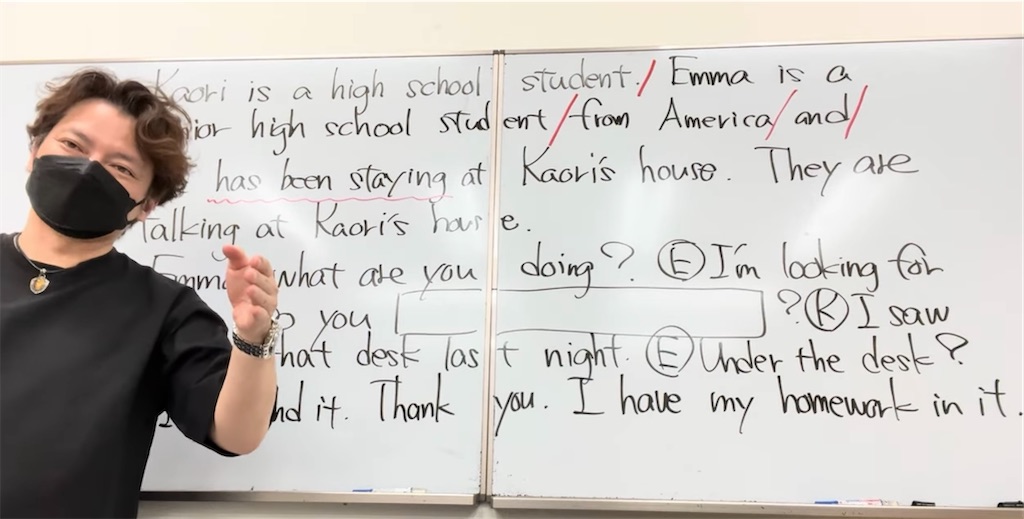 Kaori is a high school student. / Emma is a
nior high school student / from America / and /
has been staying at Kaori's house. They are
talking at Kaori's house.
Emma what are you doing? Ⓔ I'm looking for
you ? Ⓚ I saw
that desk last night. Ⓔ Under the desk?
nd it. Thank you. I have my homework in it.